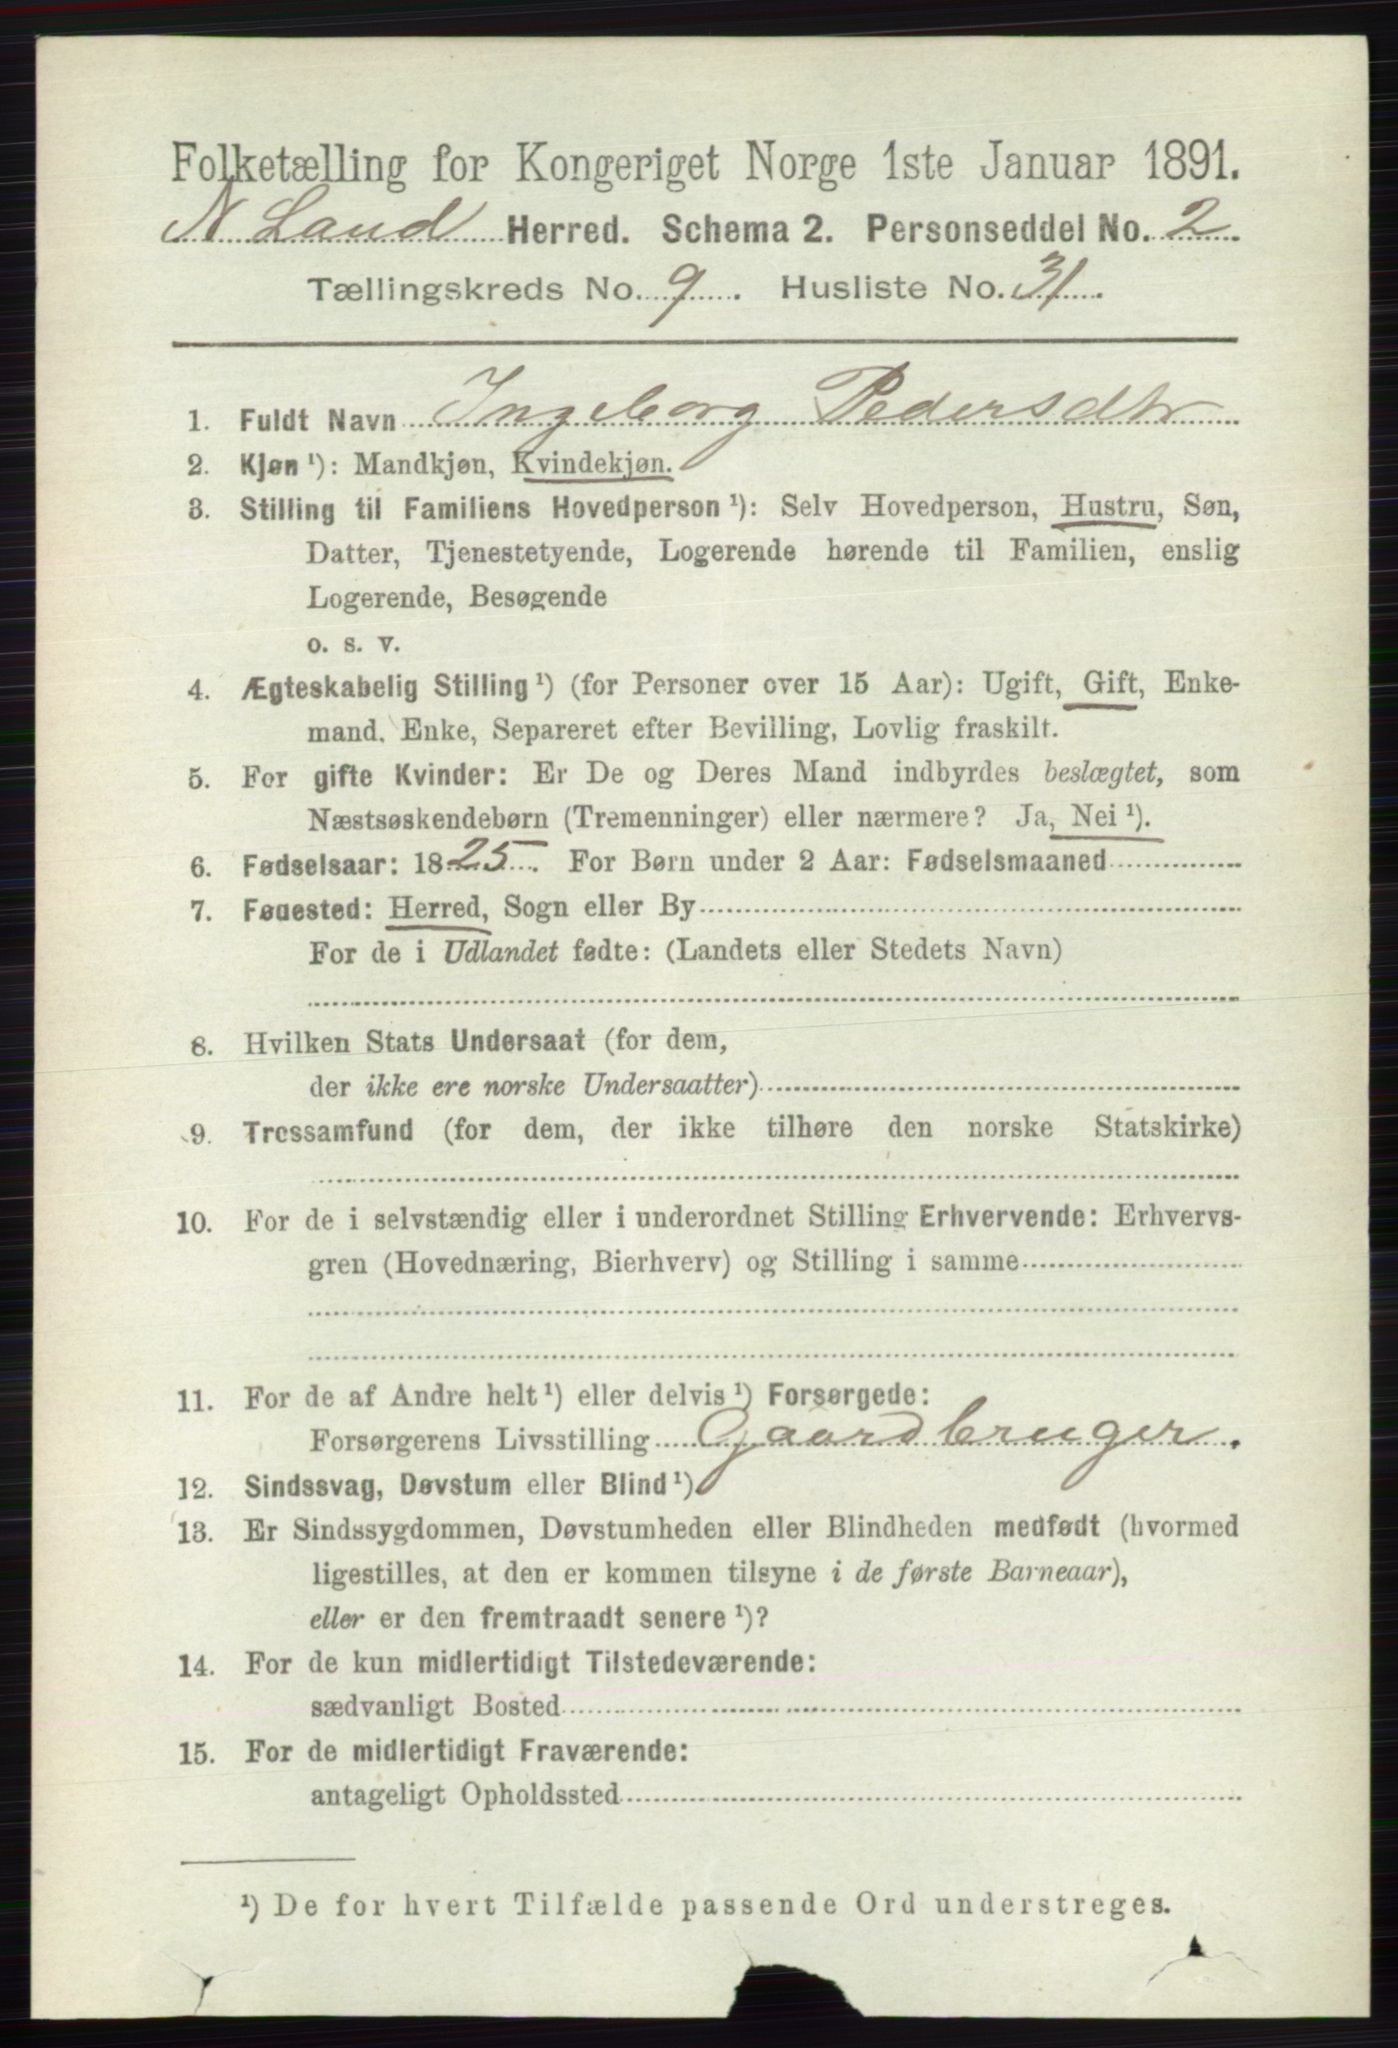 Folketælling for Kongeriget Norge 1ste Januar 1891.
N Land Herred. Schema 2. Personseddel No. 2.
Tællingskreds No. 9. Husliste No. 31.
1. Fuldt Navn Ingeborg Pedersdtr
2. Kjøn ¹): Mandkjøn, Kvindekjøn.
3. Stilling til Familiens Hovedperson ¹): Selv Hovedperson, Hustru, Søn,
Datter, Tjenestetyende, Logerende hørende til Familien, enslig
Logerende, Besøgende
o. s. v.
4. Ægteskabelig Stilling ¹) (for Personer over 15 Aar): Ugift, Gift, Enke-
mand, Enke, Separeret efter Bevilling, Lovlig fraskilt.
5. For gifte Kvinder: Er De og Deres Mand indbyrdes beslægtet, som
Næstsøskendebørn (Tremenninger) eller nærmere? Ja, Nei ¹).
6. Fødselsaar: 1825. For Børn under 2 Aar: Fødselsmaaned
7. Fødested: Herred, Sogn eller By
For de i Udlandet fødte: (Landets eller Stedets Navn)
8. Hvilken Stats Undersaat (for dem,
der ikke ere norske Undersaatter)
9. Trossamfund (for dem, der ikke tilhøre den norske Statskirke)
10. For de i selvstændig eller i underordnet Stilling Erhvervende: Erhvervs-
gren (Hovednæring, Bierhverv) og Stilling i samme
11. For de af Andre helt ¹) eller delvis ¹) Forsørgede:
Forsørgerens Livsstilling Gaardbruger.
12. Sindssvag, Døvstum eller Blind ¹)
13. Er Sindssygdommen, Døvstumheden eller Blindheden medfødt (hvormed
ligestilles, at den er kommen tilsyne i de første Barneaar),
eller er den fremtraadt senere ¹)?
14. For de kun midlertidigt Tilstedeværende:
sædvanligt Bosted
15. For de midlertidigt Fraværende:
antageligt Opholdssted
¹) De for hvert Tilfælde passende Ord understreges.